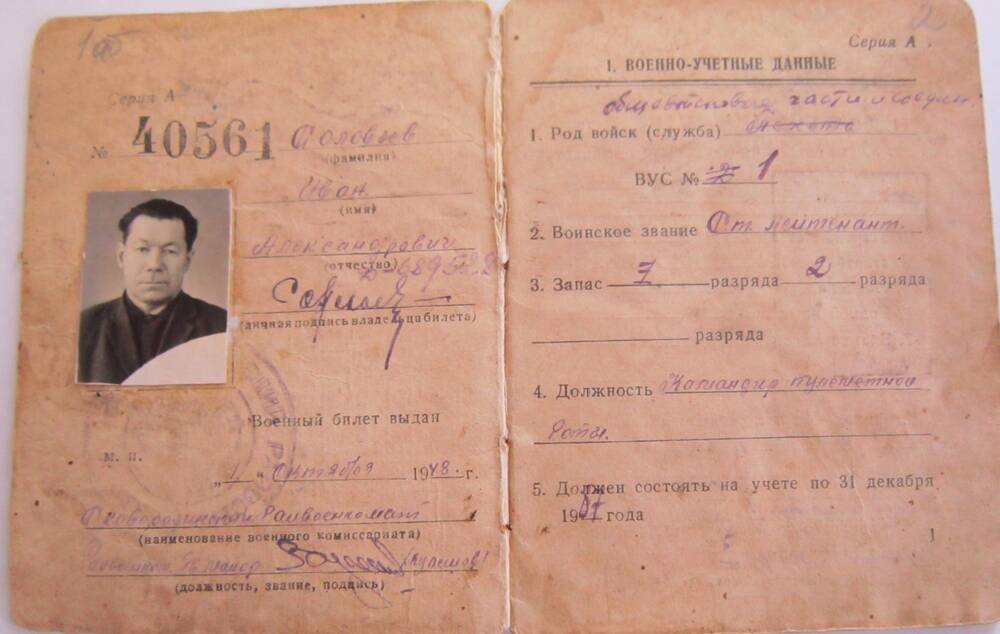 Серия А
№ 40561 Соловьев
(фамилия)
Иван
(имя)
Александрович
(отчество)
(личная подпись владельца билета)
Военный билет выдан
М. П.
„1“ октября 1948 г.
Райвоенкомат
(наименование военного комиссариата)
майор (Кулешов)
(должность, звание, подпись)
2
Серия А
1. ВОЕННО-УЧЕТНЫЕ ДАННЫЕ
общевойсковые части и соедин.
1. Род войск (служба) Пехота
ВУС № 1
2. Воинское звание Ст. лейтенант.
3. Запас 1 разряда 2 разряда
разряда
4. Должность Командир пулеметной
роты.
5. Должен состоять на учете по 31 декабря
19 года
1